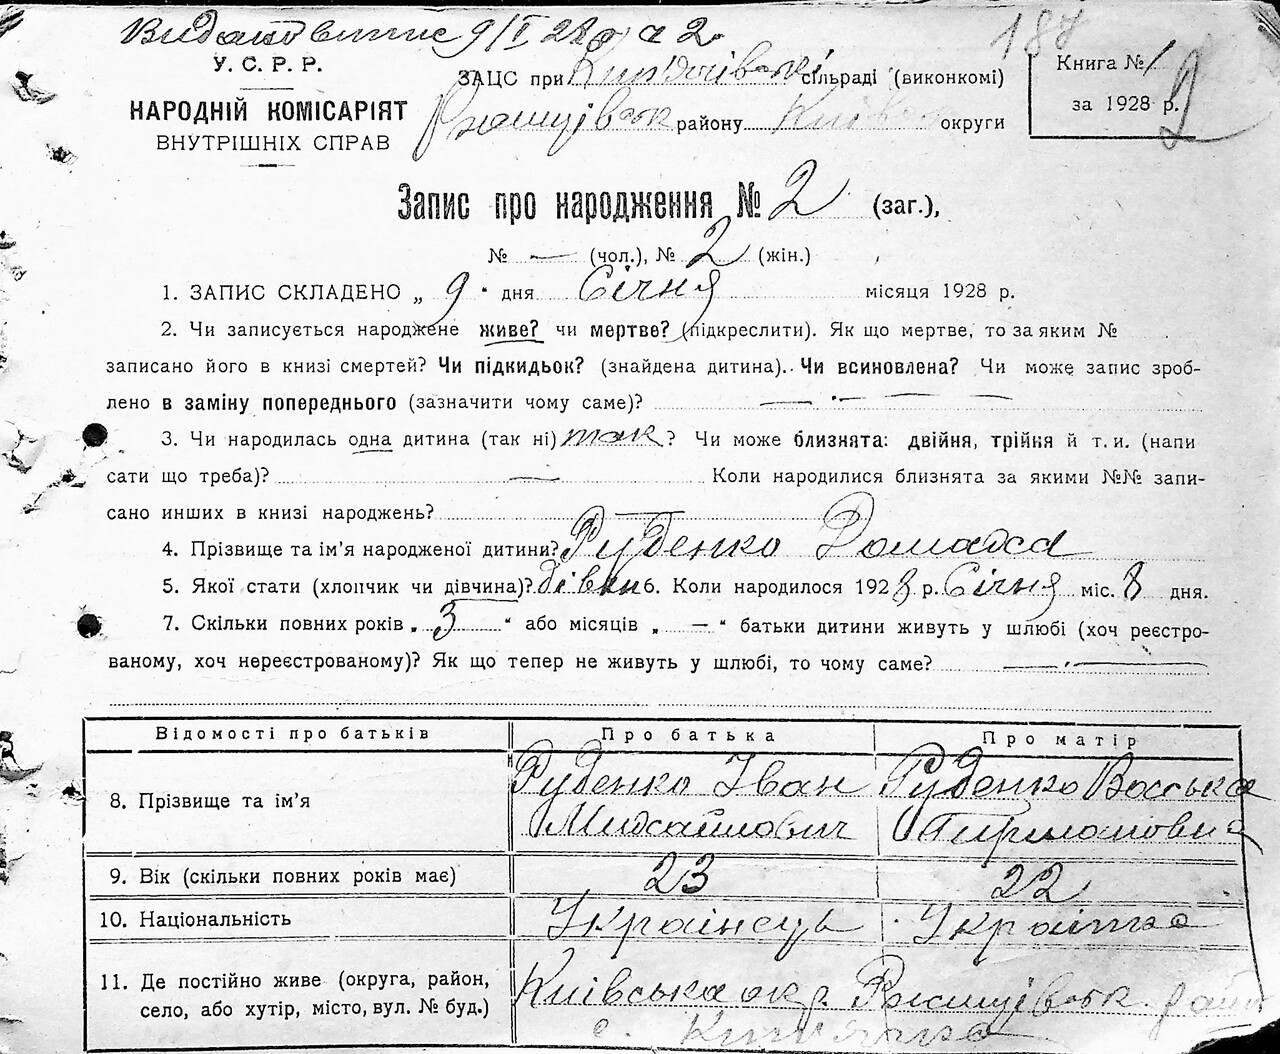 Видано виписи 9/I 28 р. № 2
187
У. С. Р. Р.
НАРОДНІЙ КОМІСАРІЯТ
ВНУТРІШНІХ СПРАВ
ЗАЦС при сільраді (виконкомі)
Ржищівськ району Київськ округи
Книга № 1
за 1928 р.
2
Запис про народження № 2 (заг.),
№ — (чол.), № 2 (жін.)
1. ЗАПИС СКЛАДЕНО „ 9 " дня Січня місяця 1928 р.
2. Чи записується народжене живе? чи мертве? (підкреслити). Як що мертве, то за яким №
записано його в книзі смертей? Чи підкидьок? (знайдена дитина).. Чи всиновлена? Чи може запис зроб-
лено в заміну попереднього (зазначити чому саме)? —
3. Чи народилась одна дитина (так ні) так ? Чи може близнята: двійня, трійня й т. и. (напи
сати що треба)? — Коли народилися близнята за якими №№ запи-
сано инших в книзі народжень? —
4. Прізвище та ім'я народженої дитини? Руденко Домаха
5. Якої стати (хлопчик чи дівчина)? дівчин 6. Коли народилося 1928 р. Січня міс. 8 дня.
7. Скільки повних років „ 3 " або місяців „ — " батьки дитини живуть у шлюбі (хоч реєстро-
ваному, хоч нереєстрованому)? Як що тепер не живуть у шлюбі, то чому саме? —
Відомості про батьків Про батька Про матір
8. Прізвище та ім'я Руденко Іван Михайлович Руденко Васська
9. Вік (скільки повних років має) 23 22
10. Національність Українець Українка
11. Де постійно живе (округа, район,
село, або хутір, місто, вул. № буд.)
Київська окр. Ржищівськ. район
с.